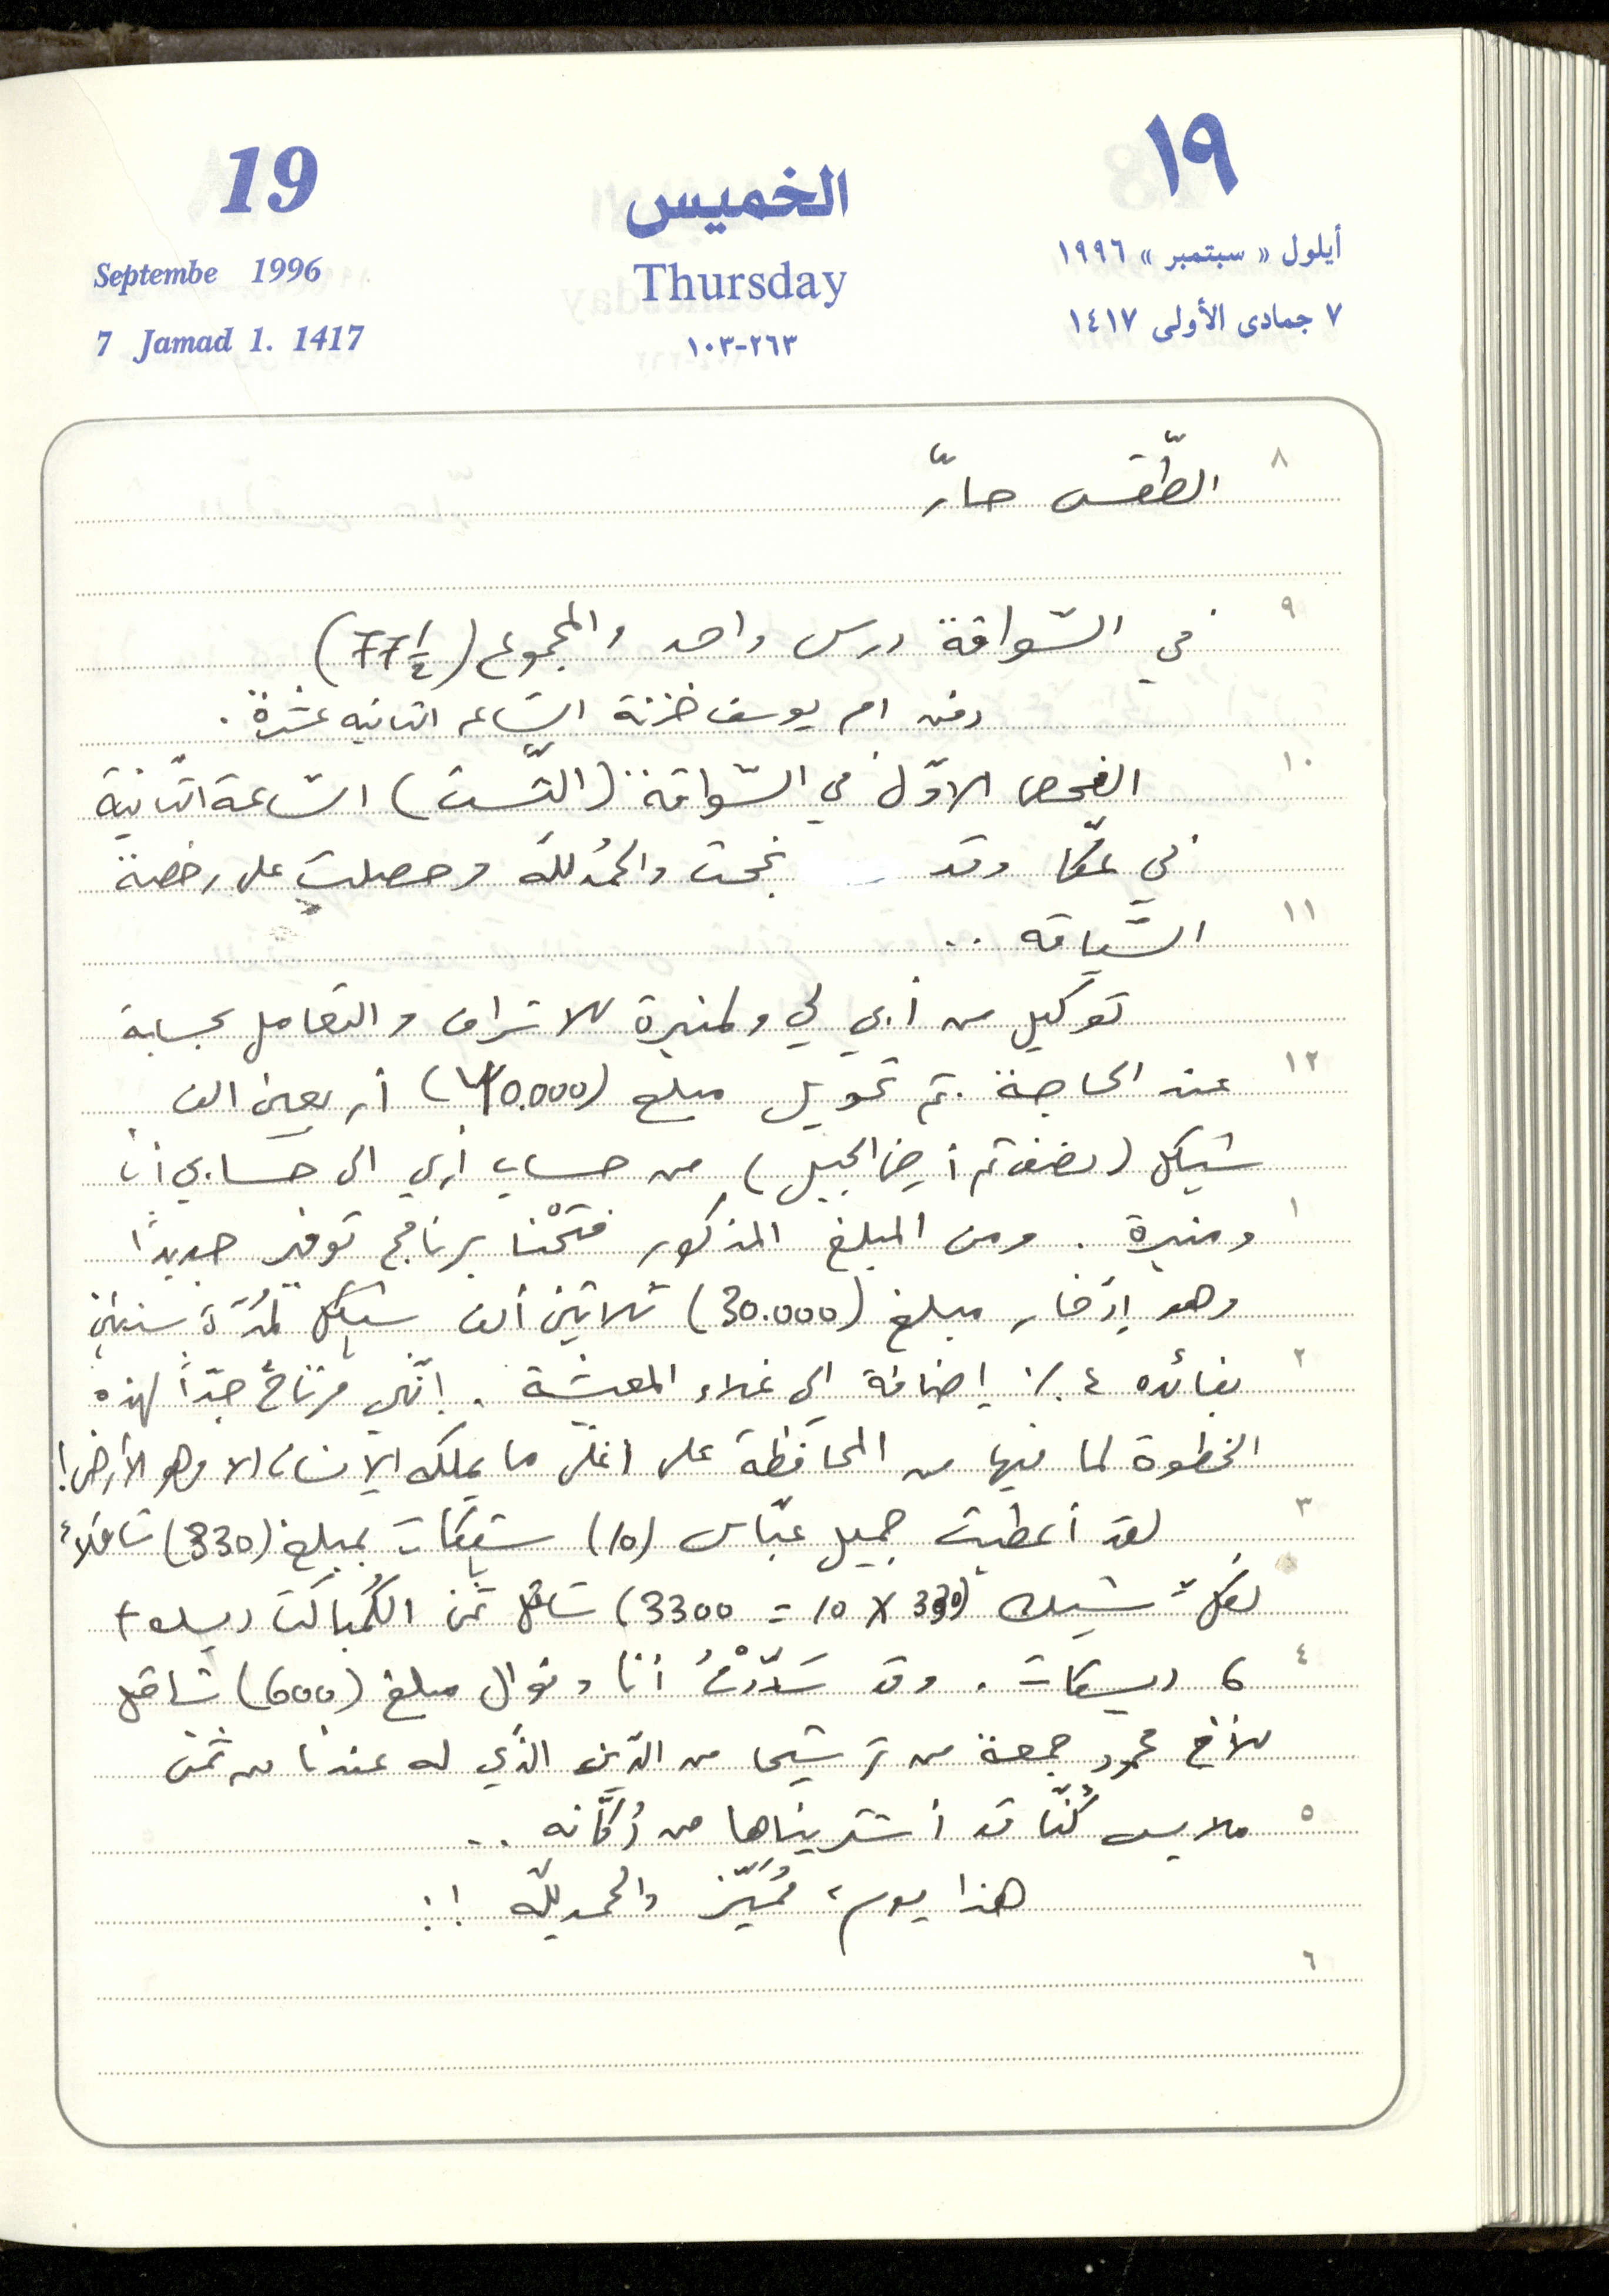 19
١٩
الخميس
Septembe 1996
أيلول « سبتمبر » ١٩٩٦
Thursday
7 Jamad 1. 1417
٧ جمادى الأولى ١٤١٧
٢٦٣-١٠٣
٨
الطّقس حارّ
٩
في السّواقة درس واحد والمجموع (77½)
دفن ام يوسف خزنة السّاعه الثانيه عشرة .
١٠
الفحص الاوّل في السّواقة (التّست) السّاعة الثّانية
في عكّا وقد نجحت والحمُد للّه وحصلت على رخصة
١١
السّياقه ..
توكيل من أبي لي ولمنيرة للاشراف والتعامل بحسابه
١٢
عند الحاجة . تم تحويل مبلغ (40.000) أربعين الف
شيكل (نصف ثم أرض الجبل) من حساب أبي الى حسابي أنا
١
ومنيرة . ومن المبلغ المذكور فتَحْنا برنامج توفير جديدًا
وهو إدّخار مبلغ (30.000) ثلاثين ألف شيكل لمُدّة سنتين
٢
بفائده ٤٪ إضافة الى غلاء المعيشة . إنّني مرتاحٌ جدّاً لهذه
الخطوة لما فيها من المحافظة على أغلى ما يملكه الإنسان الا وهو الأرض!
٣
لقد أعطيت جميل عبّاس (10) شيكات بمبلغ (330) شاقلاً
لكلّ شيك (330 X 10 = 3300) شاقل ثمن الكُمباكت ديسك +
٤
6 ديسكات . وقد سَدّدْتُ أنا ونوال مبلغ (600) شاقل
للأخ محمود جمعة من ترشيحا من الدّين الذّي له عندنا من ثمن
٥
ملابس كُنّا قد أشتريناها من دُكّانه ..
هذا يوم، مُمَيّز والحمد للّه !!
٦